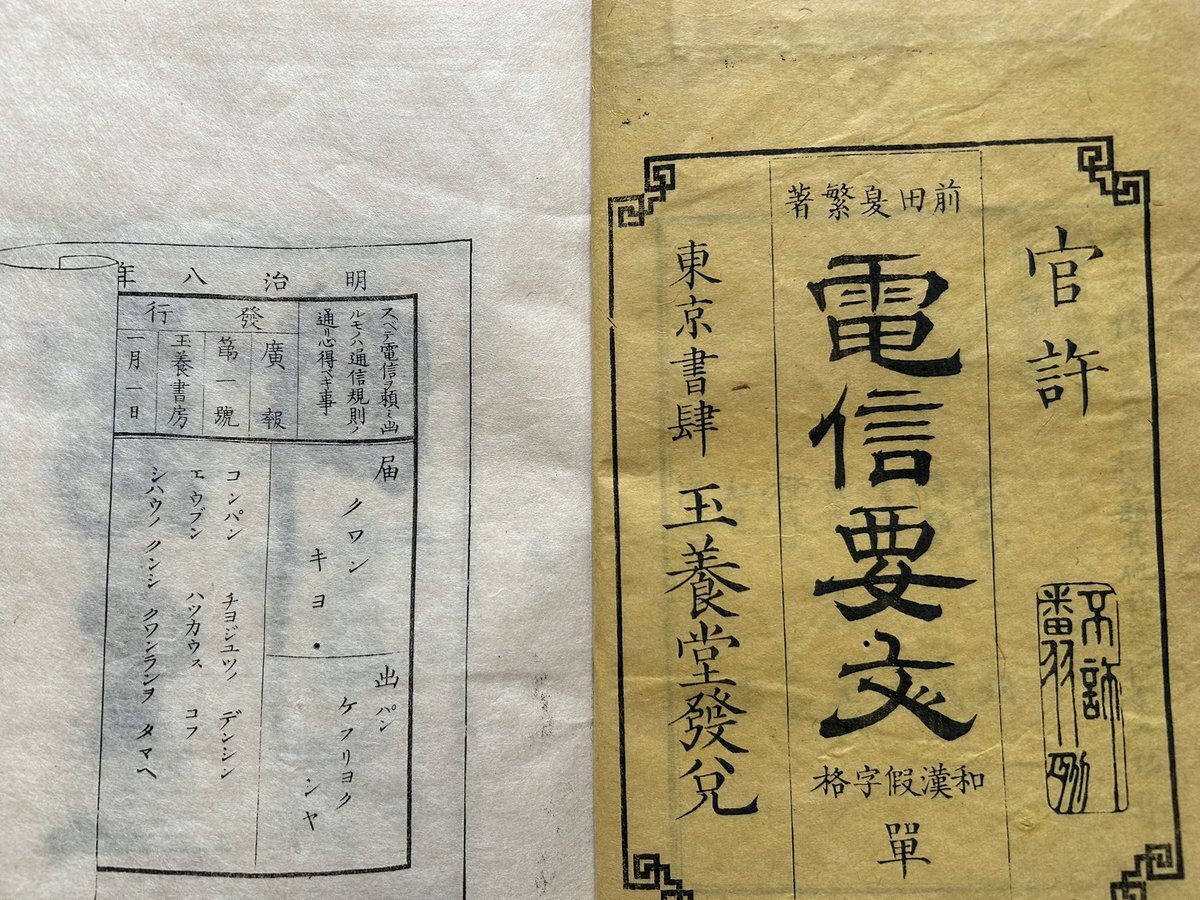 官許
不許翻刻
前田夏繁著
電信要文
和漢假字格
單
東京書肆 玉養堂發兌
明治八年
スベテ電信ヲ頼ミ出
ルモノハ通信規則ノ
通リ心得ベキ事
發行
廣報
第一號
玉養書房
一月一日
届
クワン
キヨ.
出パン
ケフリヨク
シヤ
コンパン チヨジユツノ デンシン
エウブン ハツカウス コフ
シハウノ クンシ クワンランヲ タマヘ